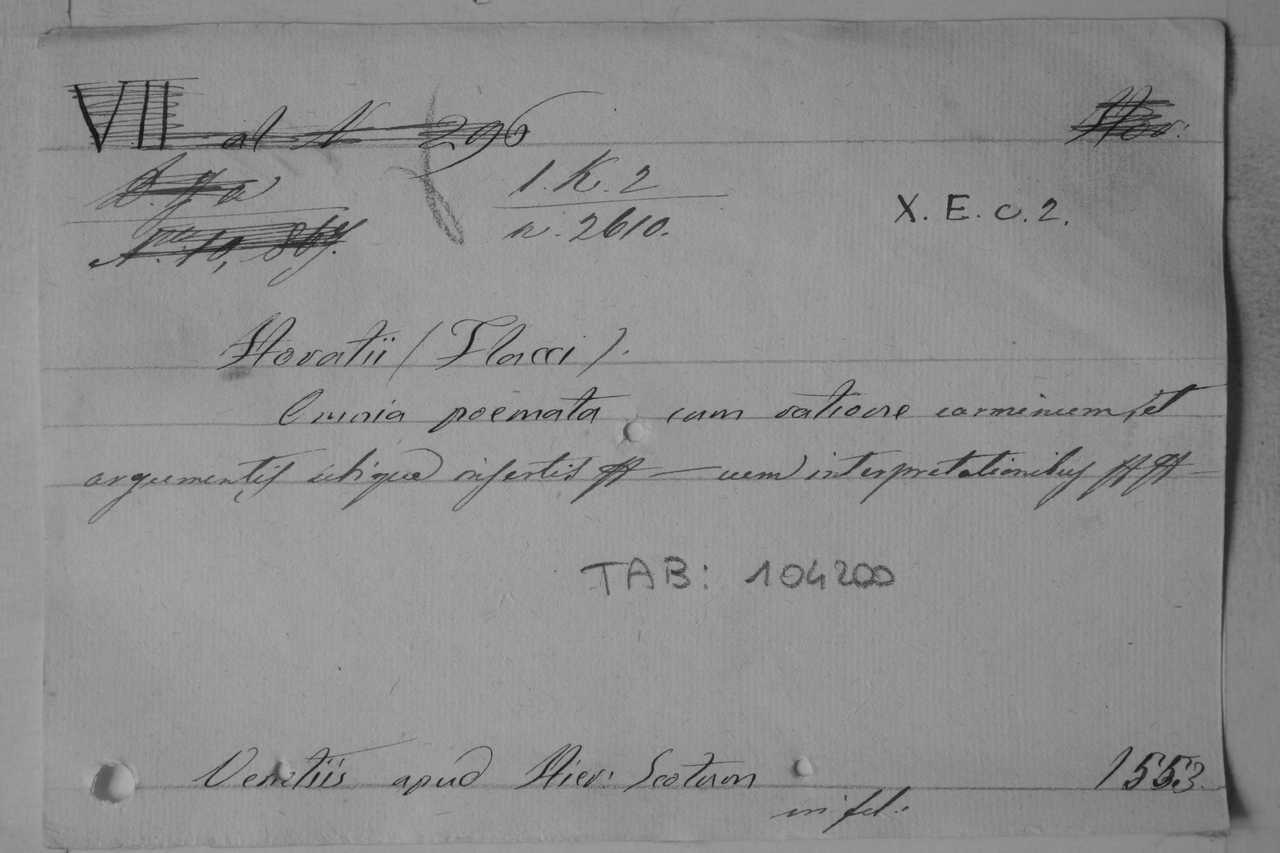 VII ad N 296
Hor:
1. K. 2
n. 2610.
X. E. c. 2.
Horatii (Flacci).
Omnia poëmata cum ratione carminum, et
argumentis ubique insertis — cum interpretationibus
TAB: 104200
Venetiis apud Hier: Scotum 1553.
in fol: